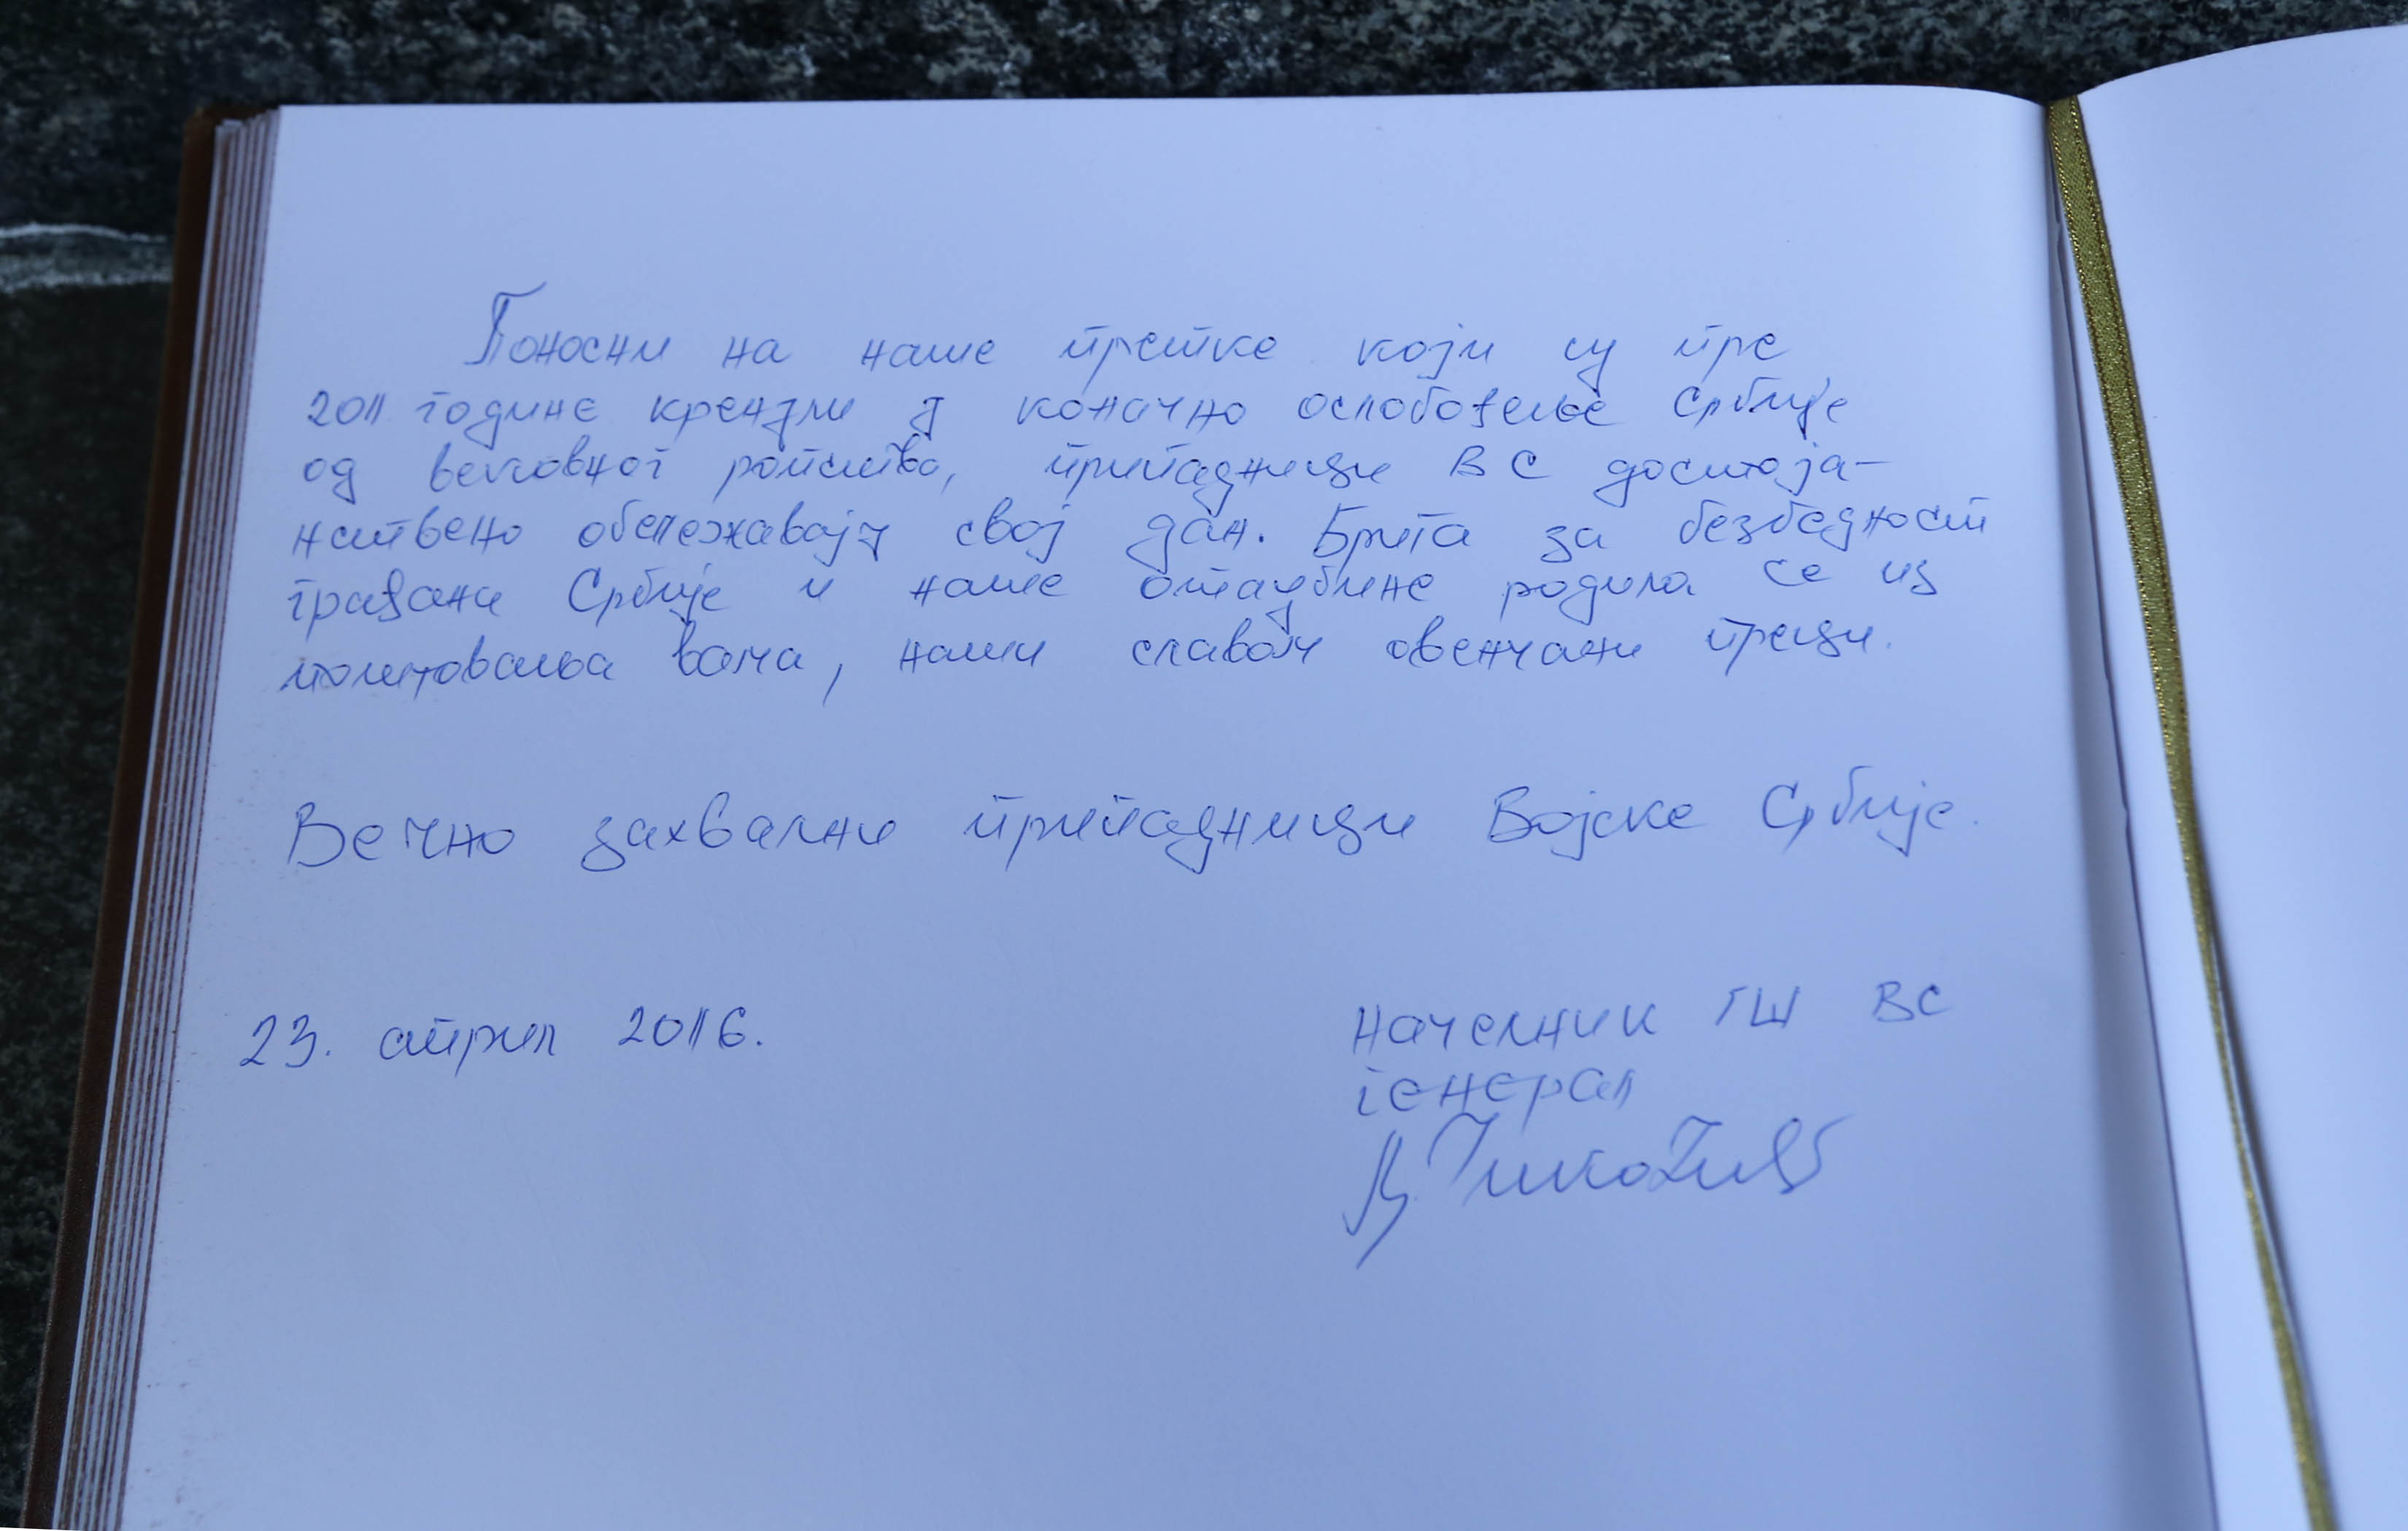 Поносни на наше претке који су пре
201 године кренули у коначно ослобођење Србије
од вековног ропства, припадници ВС достоја-
нствено обележавају свој дан. Брига за безбедност
грађана Србије и наше отаџбине родила се из
поштовања вама, наши славом овенчани преци.
Вечно захвални припадници Војске Србије.
23. април 2016.
Начелник ГШ ВС
генерал